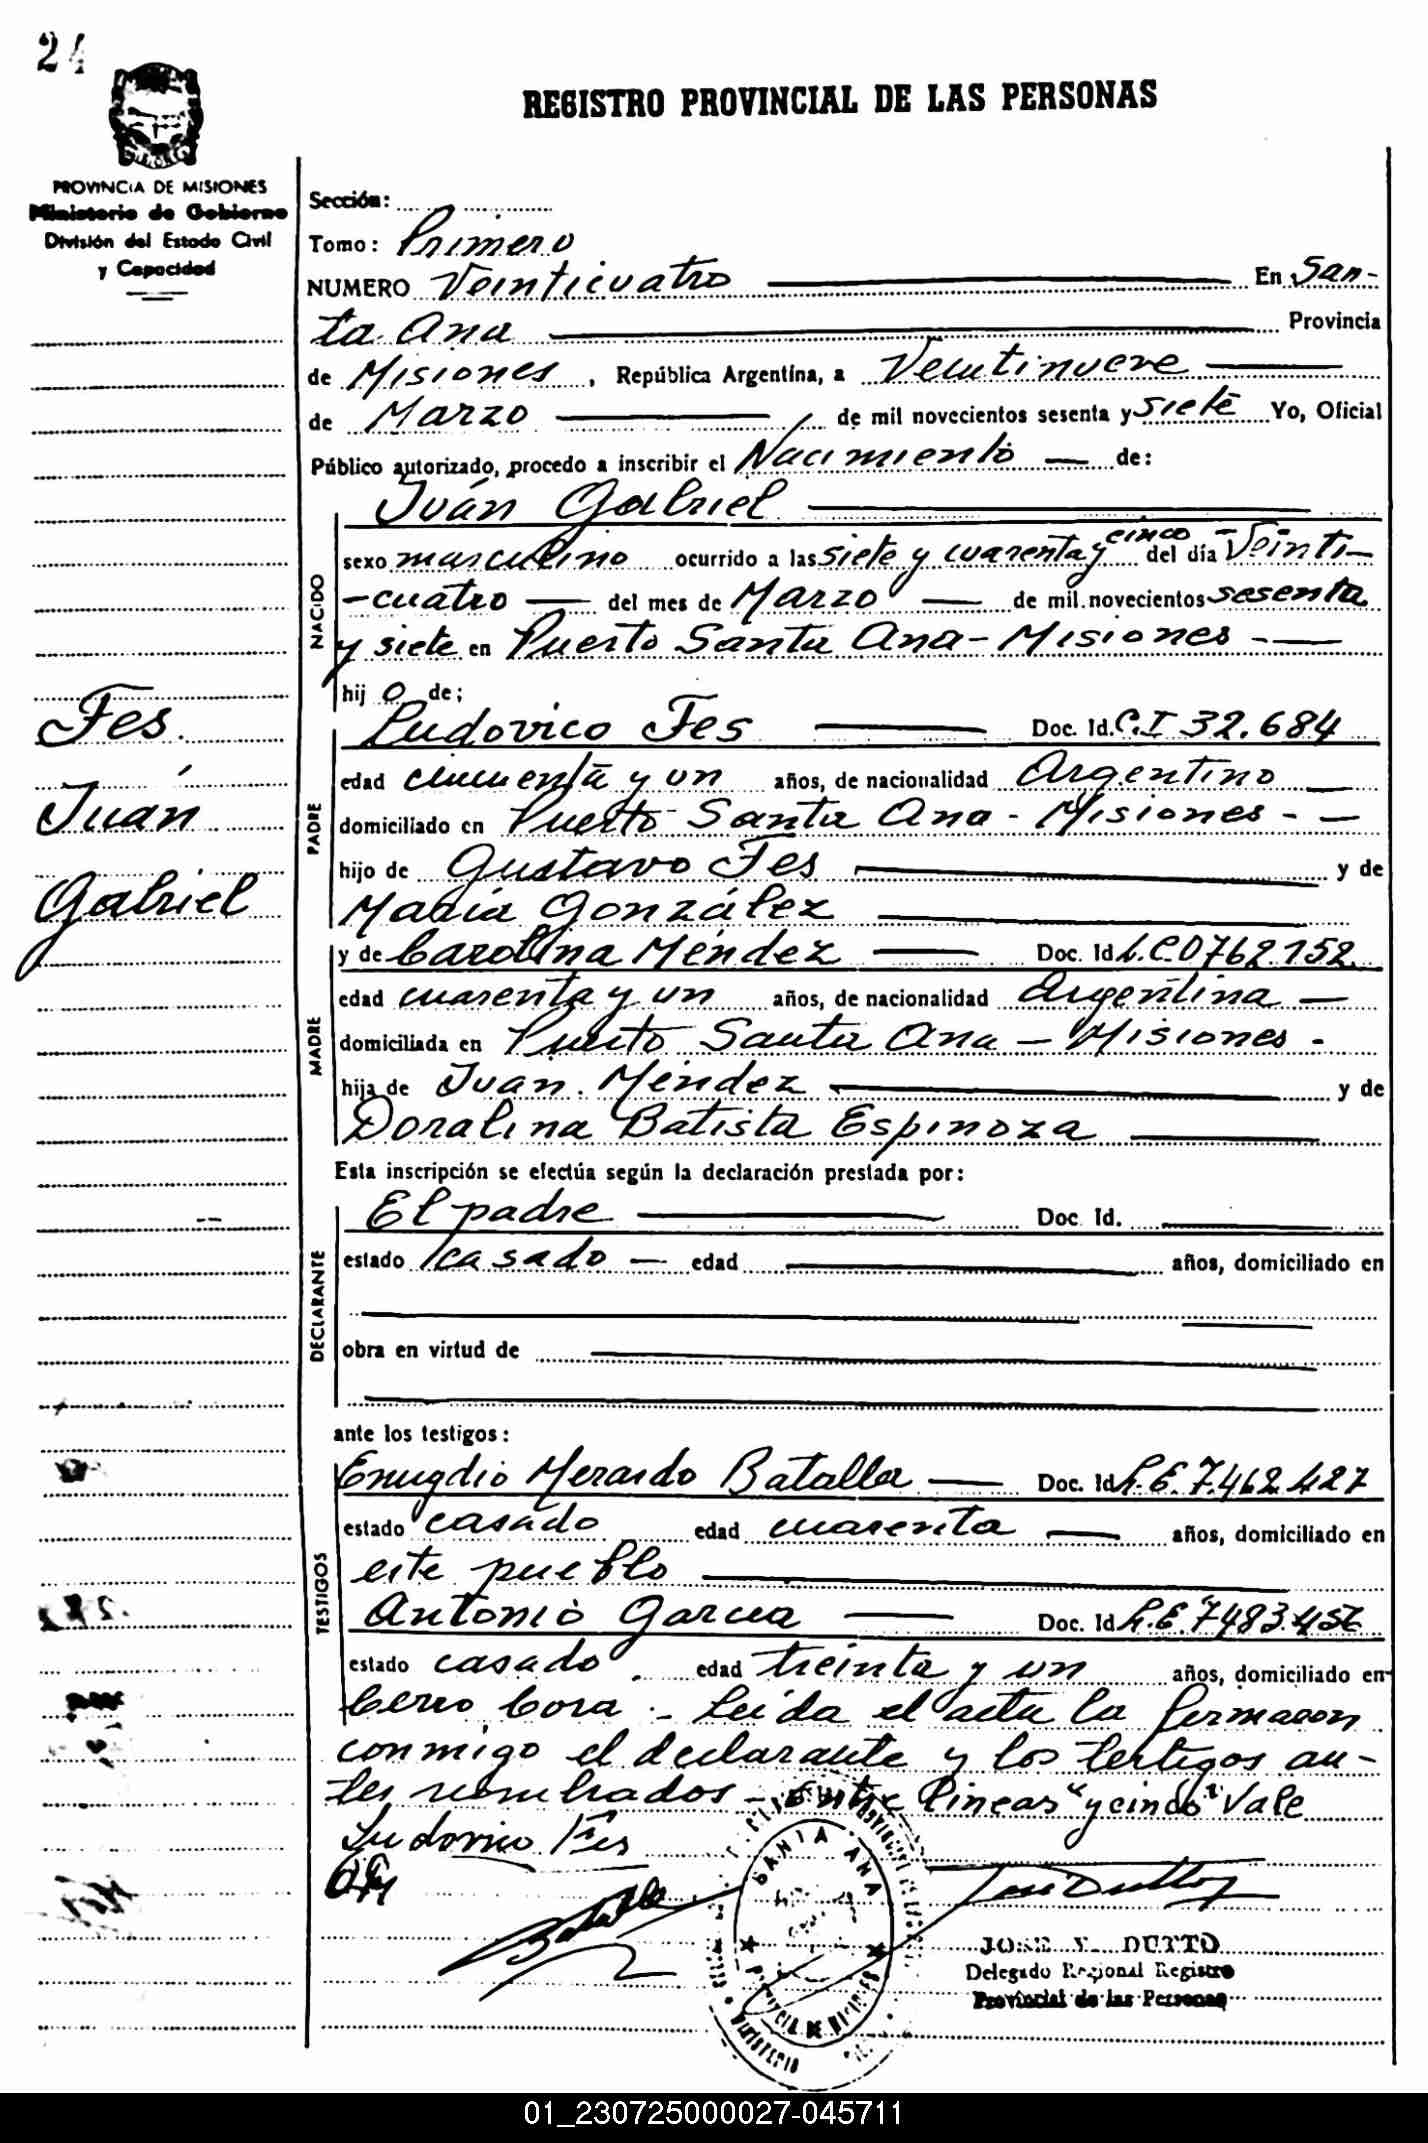 24
REGISTRO PROVINCIAL DE LAS PERSONAS
PROVINCIA DE MISIONES
Ministerio de Gobierno
División del Estado Civil
y Capacidad
Fes
Juán
Gabriel
Sección:
Tomo: Primero
NUMERO Veinticuatro En San-
ta Ana Provincia
de Misiones, República Argentína, a Veintinueve
de Marzo de mil novecientos sesenta y siete Yo, Oficial
Público autorizado, procedo a inscribir el Nacimiento de:
Juán Gabriel
NACIDO
sexo masculino ocurrido a las siete y cuarenta y cinco del día Veinti-
-cuatro del mes de Marzo de mil novecientos sesenta
y siete en Puerto Santa Ana - Misiones
hijo de;
PADRE
Ludovico Fes Doc. Id. C.I 32.684
edad cincuenta y un años, de nacionalidad Argentino
domiciliado en Puerto Santa Ana - Misiones -
hijo de Gustavo Fes y de
María González
MADRE
y de Carolina Méndez Doc. Id L.C 0762.152
edad cuarenta y un años, de nacionalidad Argentina
domiciliada en Puerto Santa Ana - Misiones -
hija de Juan Méndez y de
Doralina Batista Espinoza
Esta inscripción se efectúa según la declaración prestada por:
DECLARANTE
El padre Doc Id.
estado casado edad años, domiciliado en
obra en virtud de
ante los testigos:
TESTIGOS
Emugdio Merardo Batalla Doc. Id L.E. 7.462.427
estado casado edad cuarenta años, domiciliado en
este pueblo
Antonio Garcia Doc. Id L.E. 7483.456
estado casado edad treinta y un años, domiciliado en
Cerro Cora - Leída el acta la firmaron
conmigo el declarante y los testigos an-
tes nombrados - Entre líneas "y cinco" Vale
Ludovico Fes
SANTA ANA
JOSE DUTTO
Delegado Regional Registro
Provincial de las Personas
01_230725000027-045711